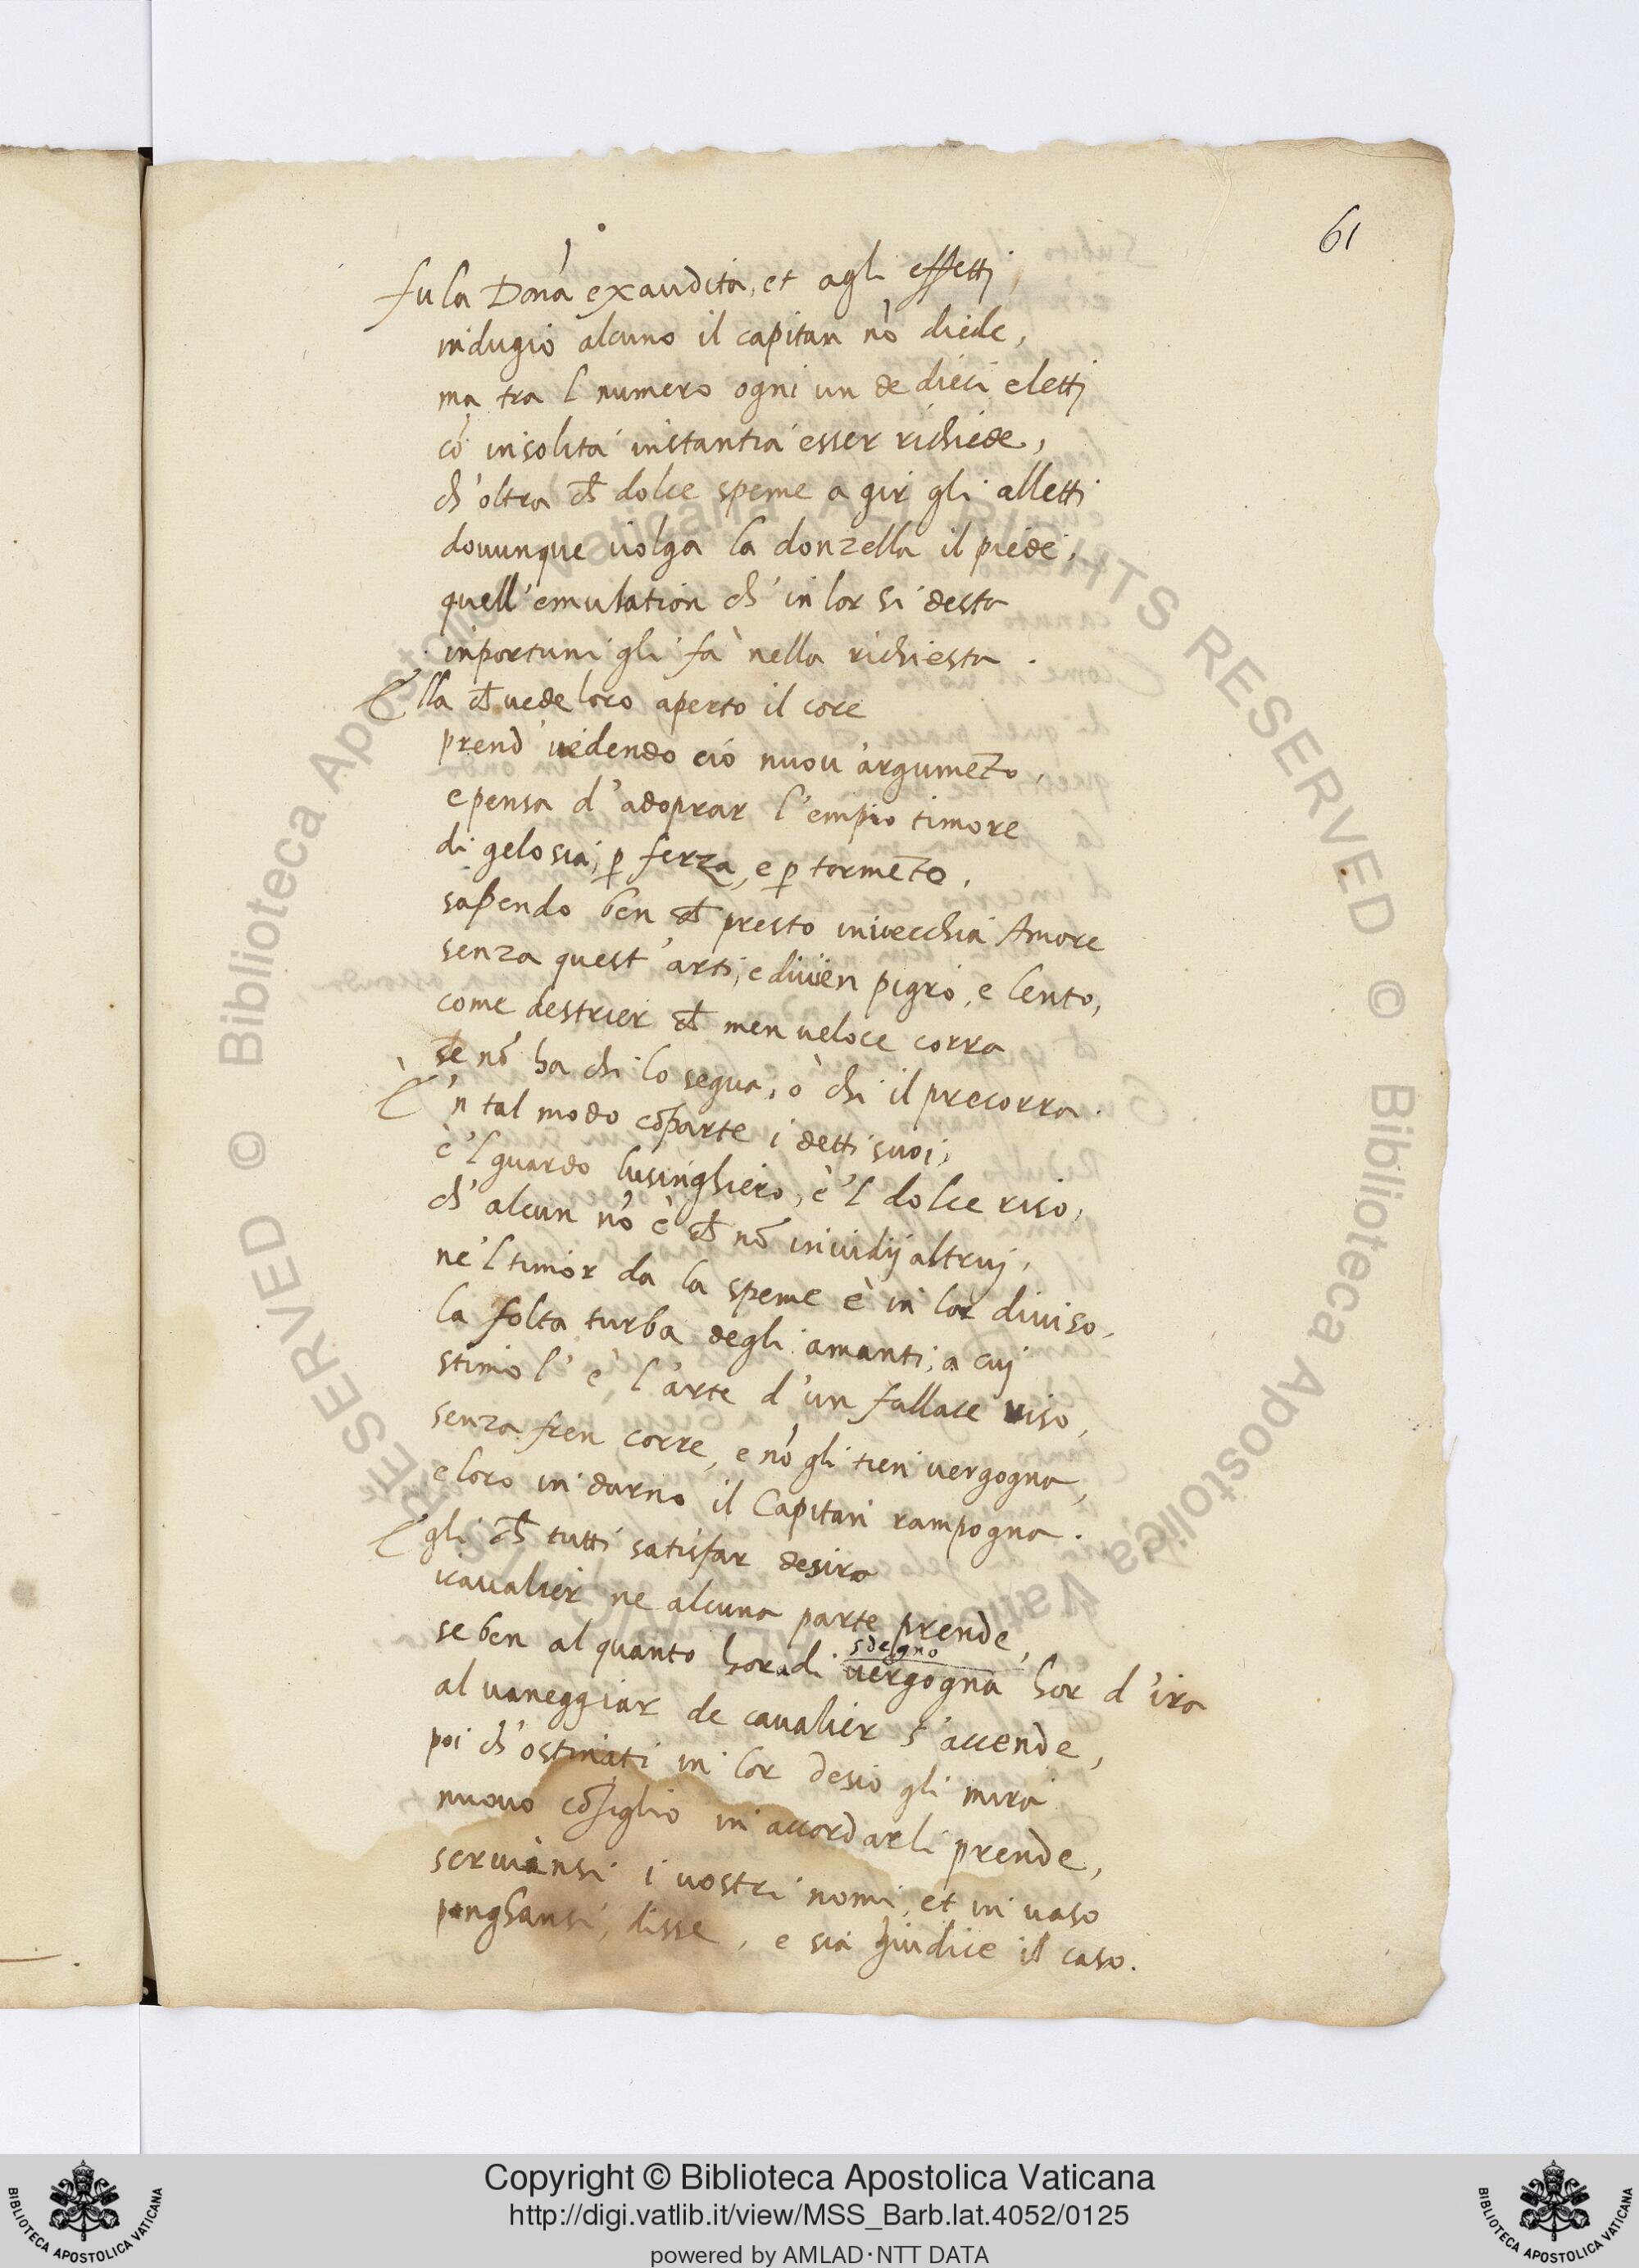 61
fu la Don̄a exaudita, et agli effetti,
indugio alcuno il capitan nō diede,
ma tra l numero ogni un de dieci eletti
cō insolita instantia esser richiede,
ch' oltra ch̄ dolce speme a gir gli alletti
douunque uolga la donzella il piede,
quell' emulation ch' in lor si desta
inportuni gli fà nella richiesta.
Ella ch̄ uede loro aperto il core
prend' uedendo ciò nuou' argumēto,
e pensa d' adoprar l' empio timore
di gelosia, ꝑ ferza, e ꝑ tormēto,
sapendo ben ch̄ presto inuecchia Amore
senza quest' arti, e diuien pigro, e lento,
come destrier ch̄ men ueloce corra
se nō ha chi lo segua, ò chi il precorra.
E 'n tal modo cōparte i detti suoi,
e 'l guardo lusinghiero, e 'l dolce riso,
ch' alcun nō è ch̄ nō inuidij altruj,
ne 'l timor da la speme è in lor diuiso.
la folta turba degli amanti, a cuj
stimol' è l' arte d' un fallace uiso,
senza fren corre, e nō gli tien uergogna,
e loro in darno il Capitan rampogna.
Egli ch̄ tutti satisfar desira
i caualier ne alcuna parte prende,
se ben al quanto hora di uergogna hor d' ira
sdegno
al uaneggiar de caualier s' accende,
poi ch' ostinati in lor desio gli mira
nuouo cōsiglio in accordarli prende,
scriuansi i uostri nomi, et in uaso
ponghansi, disse, e sia giudice il caso.
© Biblioteca Apostolica Vaticana ALL RIGHTS RESERVED
© Biblioteca Apostolica Vaticana ALL RIGHTS RESERVED
Copyright © Biblioteca Apostolica Vaticana
http://digi.vatlib.it/view/MSS_Barb.lat.4052/0125
powered by AMLAD·NTT DATA
BIBLIOTECA APOSTOLICA VATICANA
BIBLIOTECA APOSTOLICA VATICANA